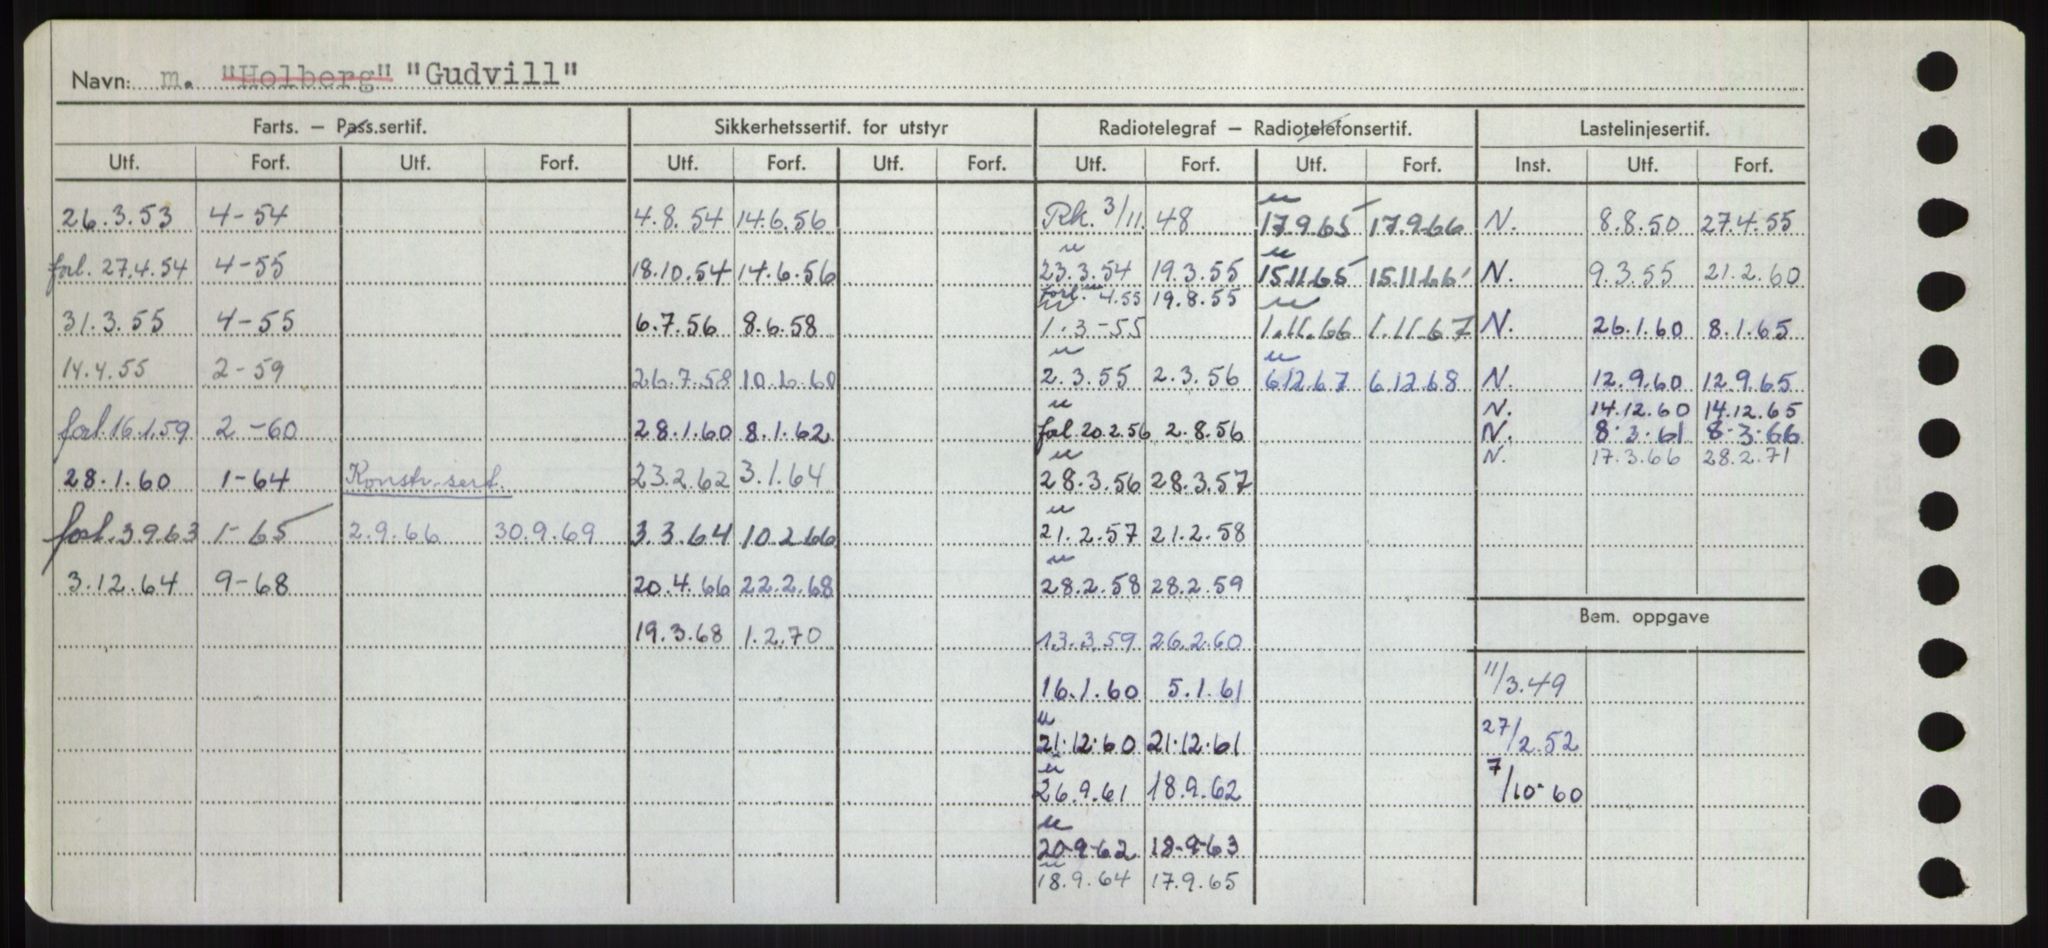 Navn: m. "Holberg" "Gudvill"
Farts. – Pass.sertif. Sikkerhetssertif. for utstyr Radiotelegraf – Radiotelefonsertif. Lastelinjesertif.
Utf. Forf. Utf. Forf. Utf. Forf. Utf. Forf. Utf. Forf. Utf. Forf. Inst. Utf. Forf.
26.3.53 4-54 4.8.54 14.6.56 Rk. 3/11. 48 u 17.9.65 17.9.66 N. 8.8.50 27.4.55
forl. 27.4.54 4-55 18.10.54 14.6.56 u 23.3.54 19.3.55 u 15.11.65 15.11.66 N. 9.3.55 21.2.60
forl. 4.55 19.8.55
31.3.55 4-55 6.7.56 8.6.58 1.3-55 u 1.11.66 1.11.67 N. 26.1.60 8.1.65
14.4.55 2-59 26.7.58 10.6.60 u 2.3.55 2.3.56 u 6.12.67 6.12.68 N. 12.9.60 12.9.65
N. 14.12.60 14.12.65
forl. 16.1.59 2-60 28.1.60 8.1.62 u fol. 20.2.56 2.8.56 N. 8.3.61 8.3.66
N. 17.3.66 28.2.71
28.1.60 1-64 Konstr.sert. 23.2.62 3.1.64 u 28.3.56 28.3.57
forl. 3.9.63 1-65 2.9.66 30.9.69 3.3.64 10.2.66 u 21.2.57 21.2.58
3.12.64 9-68 20.4.66 22.2.68 u 28.2.58 28.2.59
Bem. oppgave
19.3.68 1.2.70 13.3.59 26.2.60
16.1.60 5.1.61 11/3.49
u 21.12.60 21.12.61 27/2.52
u 26.9.61 18.9.62 7/10.60
u 20-9-62 18-9-63
u 18.9.64 17.9.65